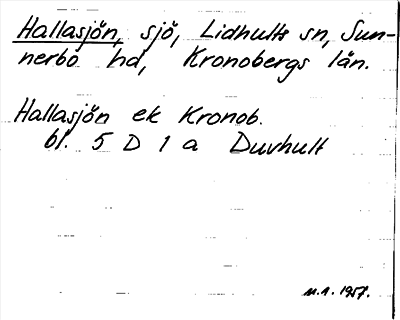 Hallasjön, sjö, Lidhults sn, Sun-
nerbo hd, Kronobergs län.
Hallasjön ek Kronob.
bl. 5 D 1 a Duvhult
M.A. 1957.